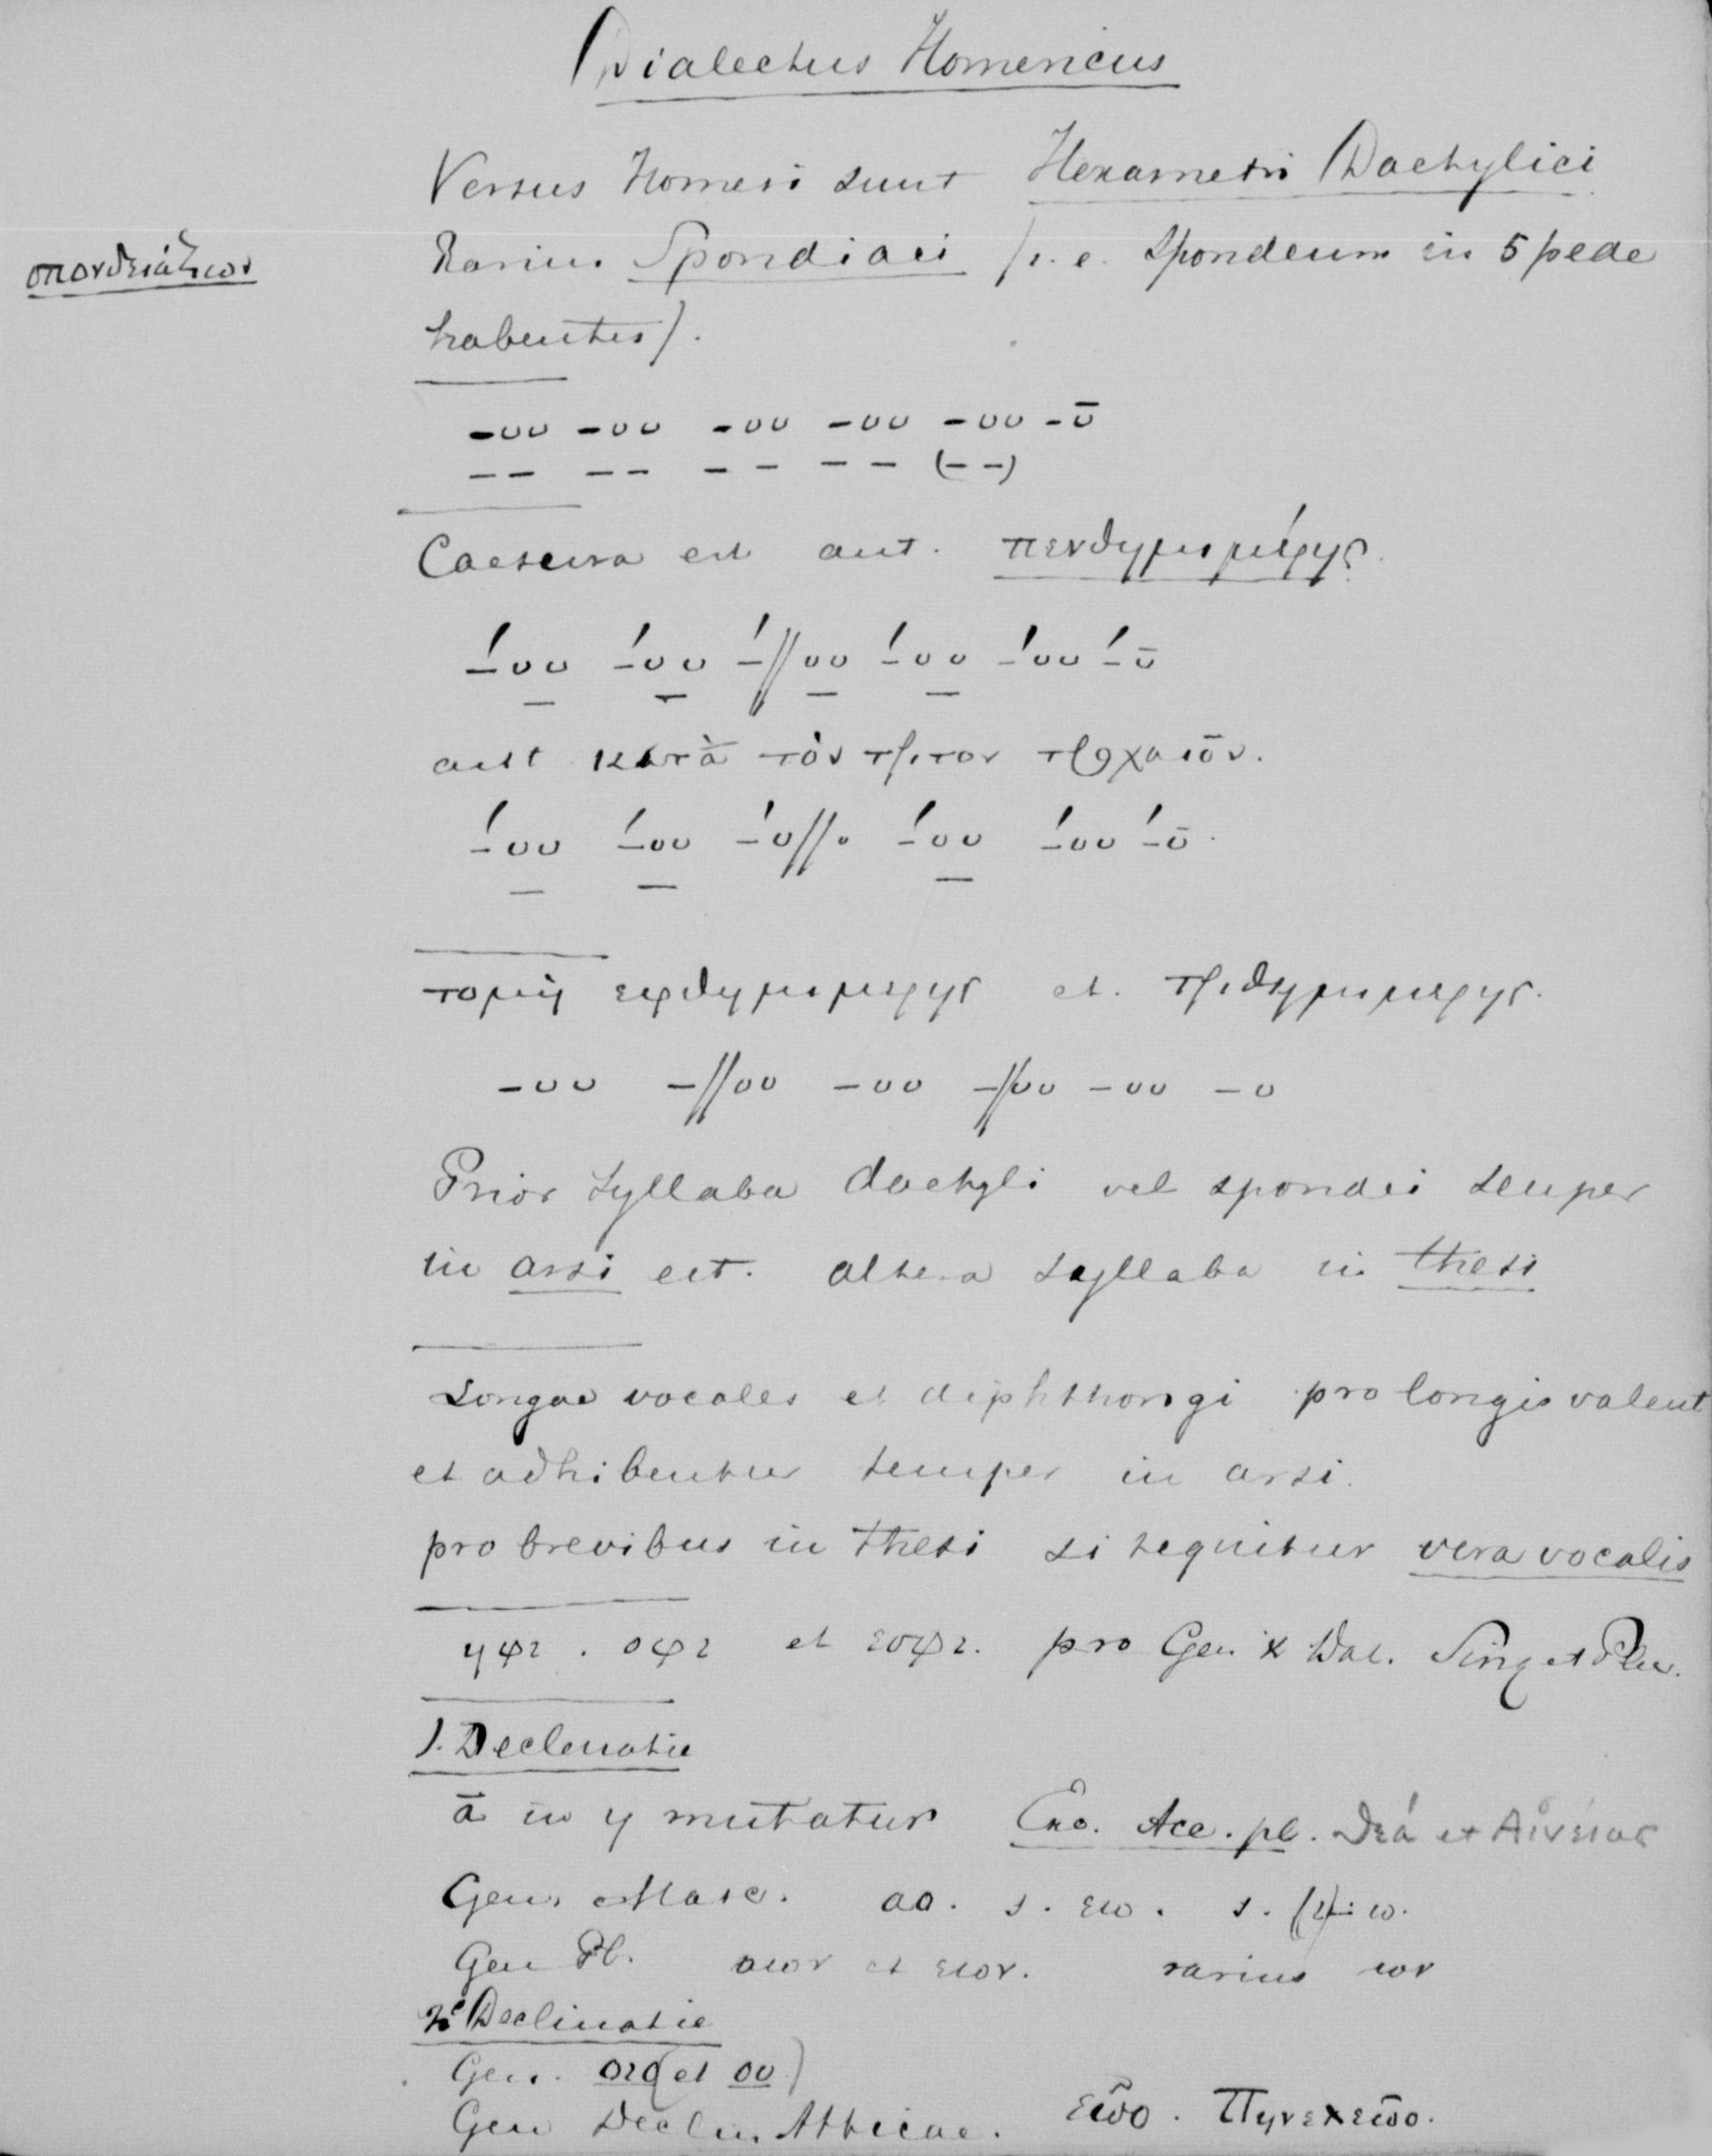 Dialectus Homericus
Versus Homeri sunt Hexametri Dactylici
σπονδειάζων
Rarius Spondiaci (i.e. Spondeum in 5 pede
habentes).
–υυ –υυ –υυ –υυ –υυ –ῡ
– – – – – – – – (– –)
Caesura est aut. πενθημιμέρης.
–́υυ –́υυ –́//υυ –́υυ –́υυ –́ῡ
– – – –
aut κατὰ τὸν τριτον τροχαιον.
–́υυ –́υυ –́υ//υ –́υυ –́υυ –́ῡ
– – –
τομὴ εφθημιμερης et. τριθημιμερης.
–υυ –//υυ –υυ –//υυ –υυ –υ
Prior Syllaba dactyli vel spondei semper
in arsi est. altera syllaba in thesi
Longae vocales et diphthongi pro longis valent
et adhibentur semper in arsi.
pro brevibus in thesi si sequitur vera vocalis
ηφι . οφι et εσφι. pro Gen. & Dat. Sing et Plu.
1. Declinatie
ā in η mutatur Exc. Acc. pl. θεά et Αἰνείας
Gen. Masc. αο. s. εω. s. ω.
Gen Pl. αων et εων. rarius ων
2e Declinatie
Gen. οιο (et ου)
Gen Declin Atticae. εῶο. Πηνεχεῶο.